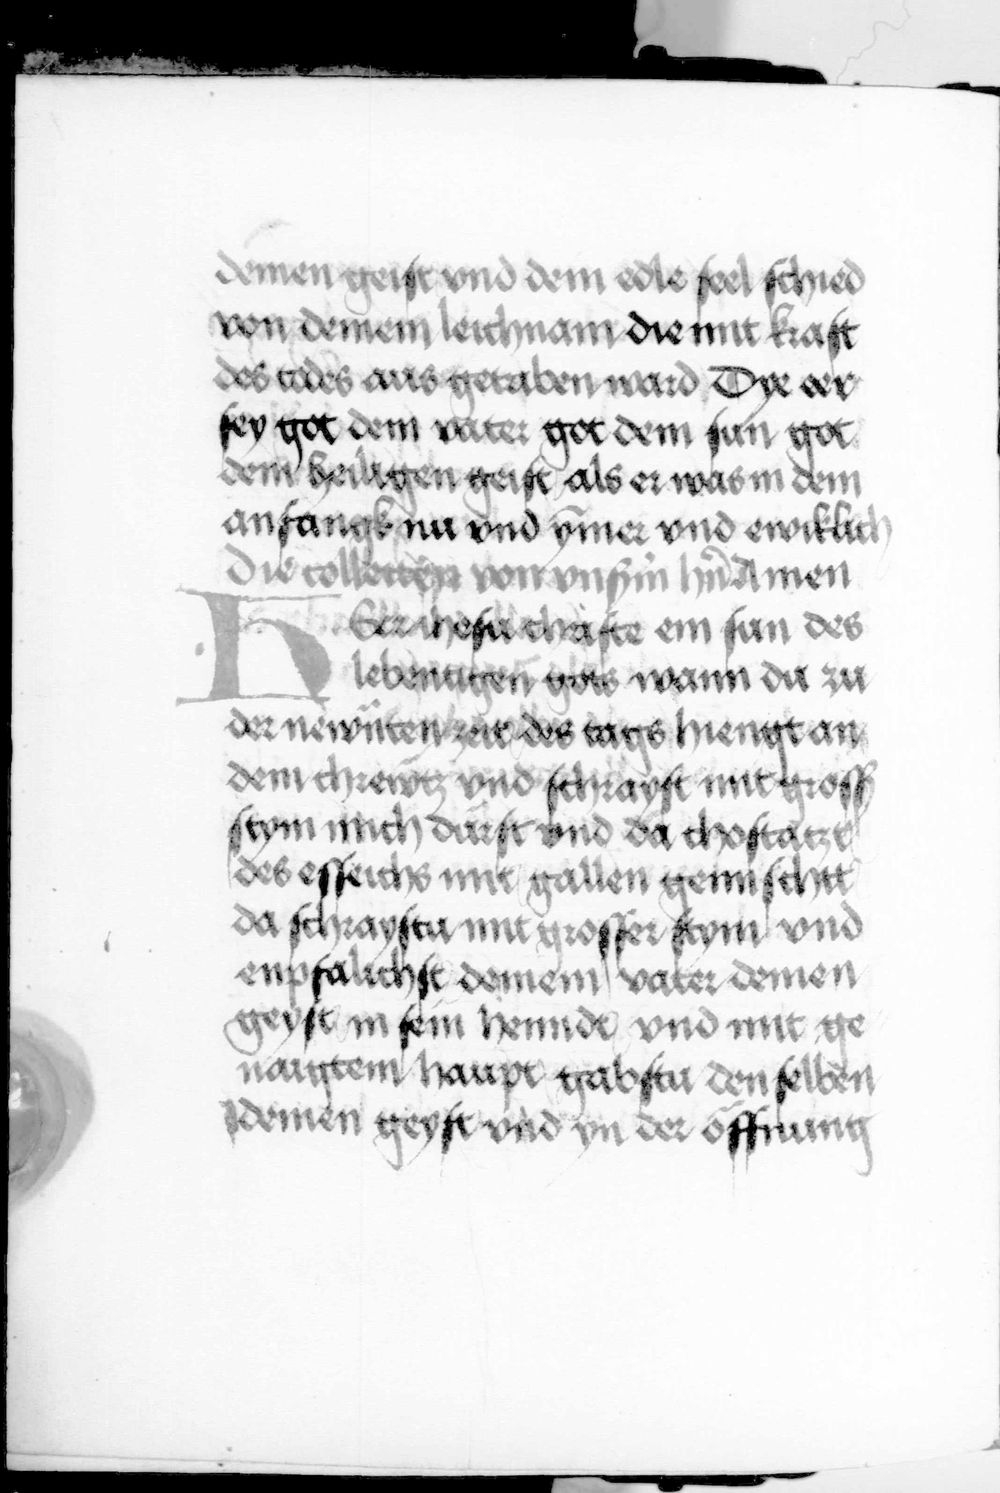 deinen geist vnd dein edle seel schied
von deinem leichnam die mit kraft
des todes aus getriben ward Dye eer
sey got dem vater got dem sun got
dem heiligen geist als er was in dem
anfangk nu vnd ymer vnd ewiklich
Die collecten von vnsm hrn Amen
HErr ihesu christe ein sun des
lebentigen gots wann du zu
der newnten zeit des tags hiengt an
dem chrewtz vnd schrayst mit grosser
stym mich durst vnd da chostatzt
des esseichs mit gallen gemischtt
da schraystu mit grosser stym vnd
enpfalichst deinem vater deinen
geyst in sein henndt vnd mit ge
naigtem haupt gabstu den selben
deinen geyst vnd yn der öffnung